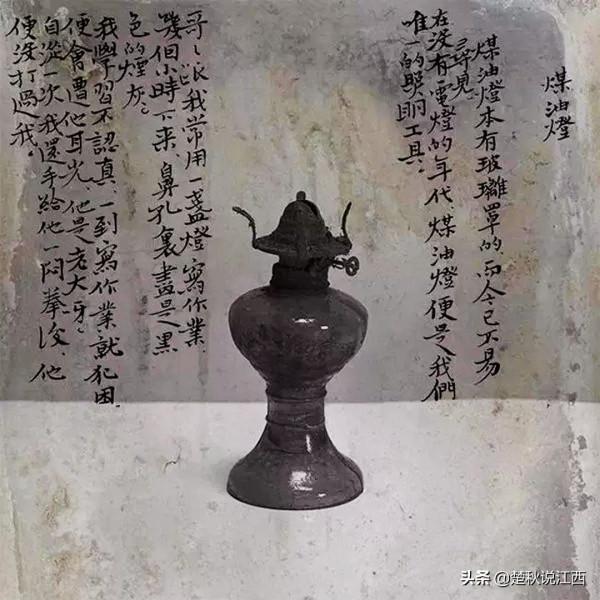 煤油燈
煤油燈本有玻璃罩的而今已不易
尋見。
在沒有電燈的年代,煤油燈便是我們
唯一的照明工具。
哥〻跟我常用一盞燈寫作業,
幾個小時下來,鼻孔裏盡是黑
色的煙灰。
我學習不認真,一到寫作業就犯困,
便會遭他耳光,他是老大呀。
自從一次我還手給他一悶拳後,他
便沒打過我。
头条 @楚秋说江西